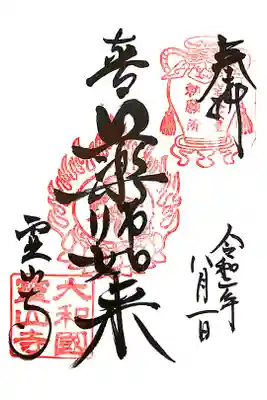 奉拝
勅願所
令和年
八月一日
薬師如来
霊山寺
大和國
霊山寺